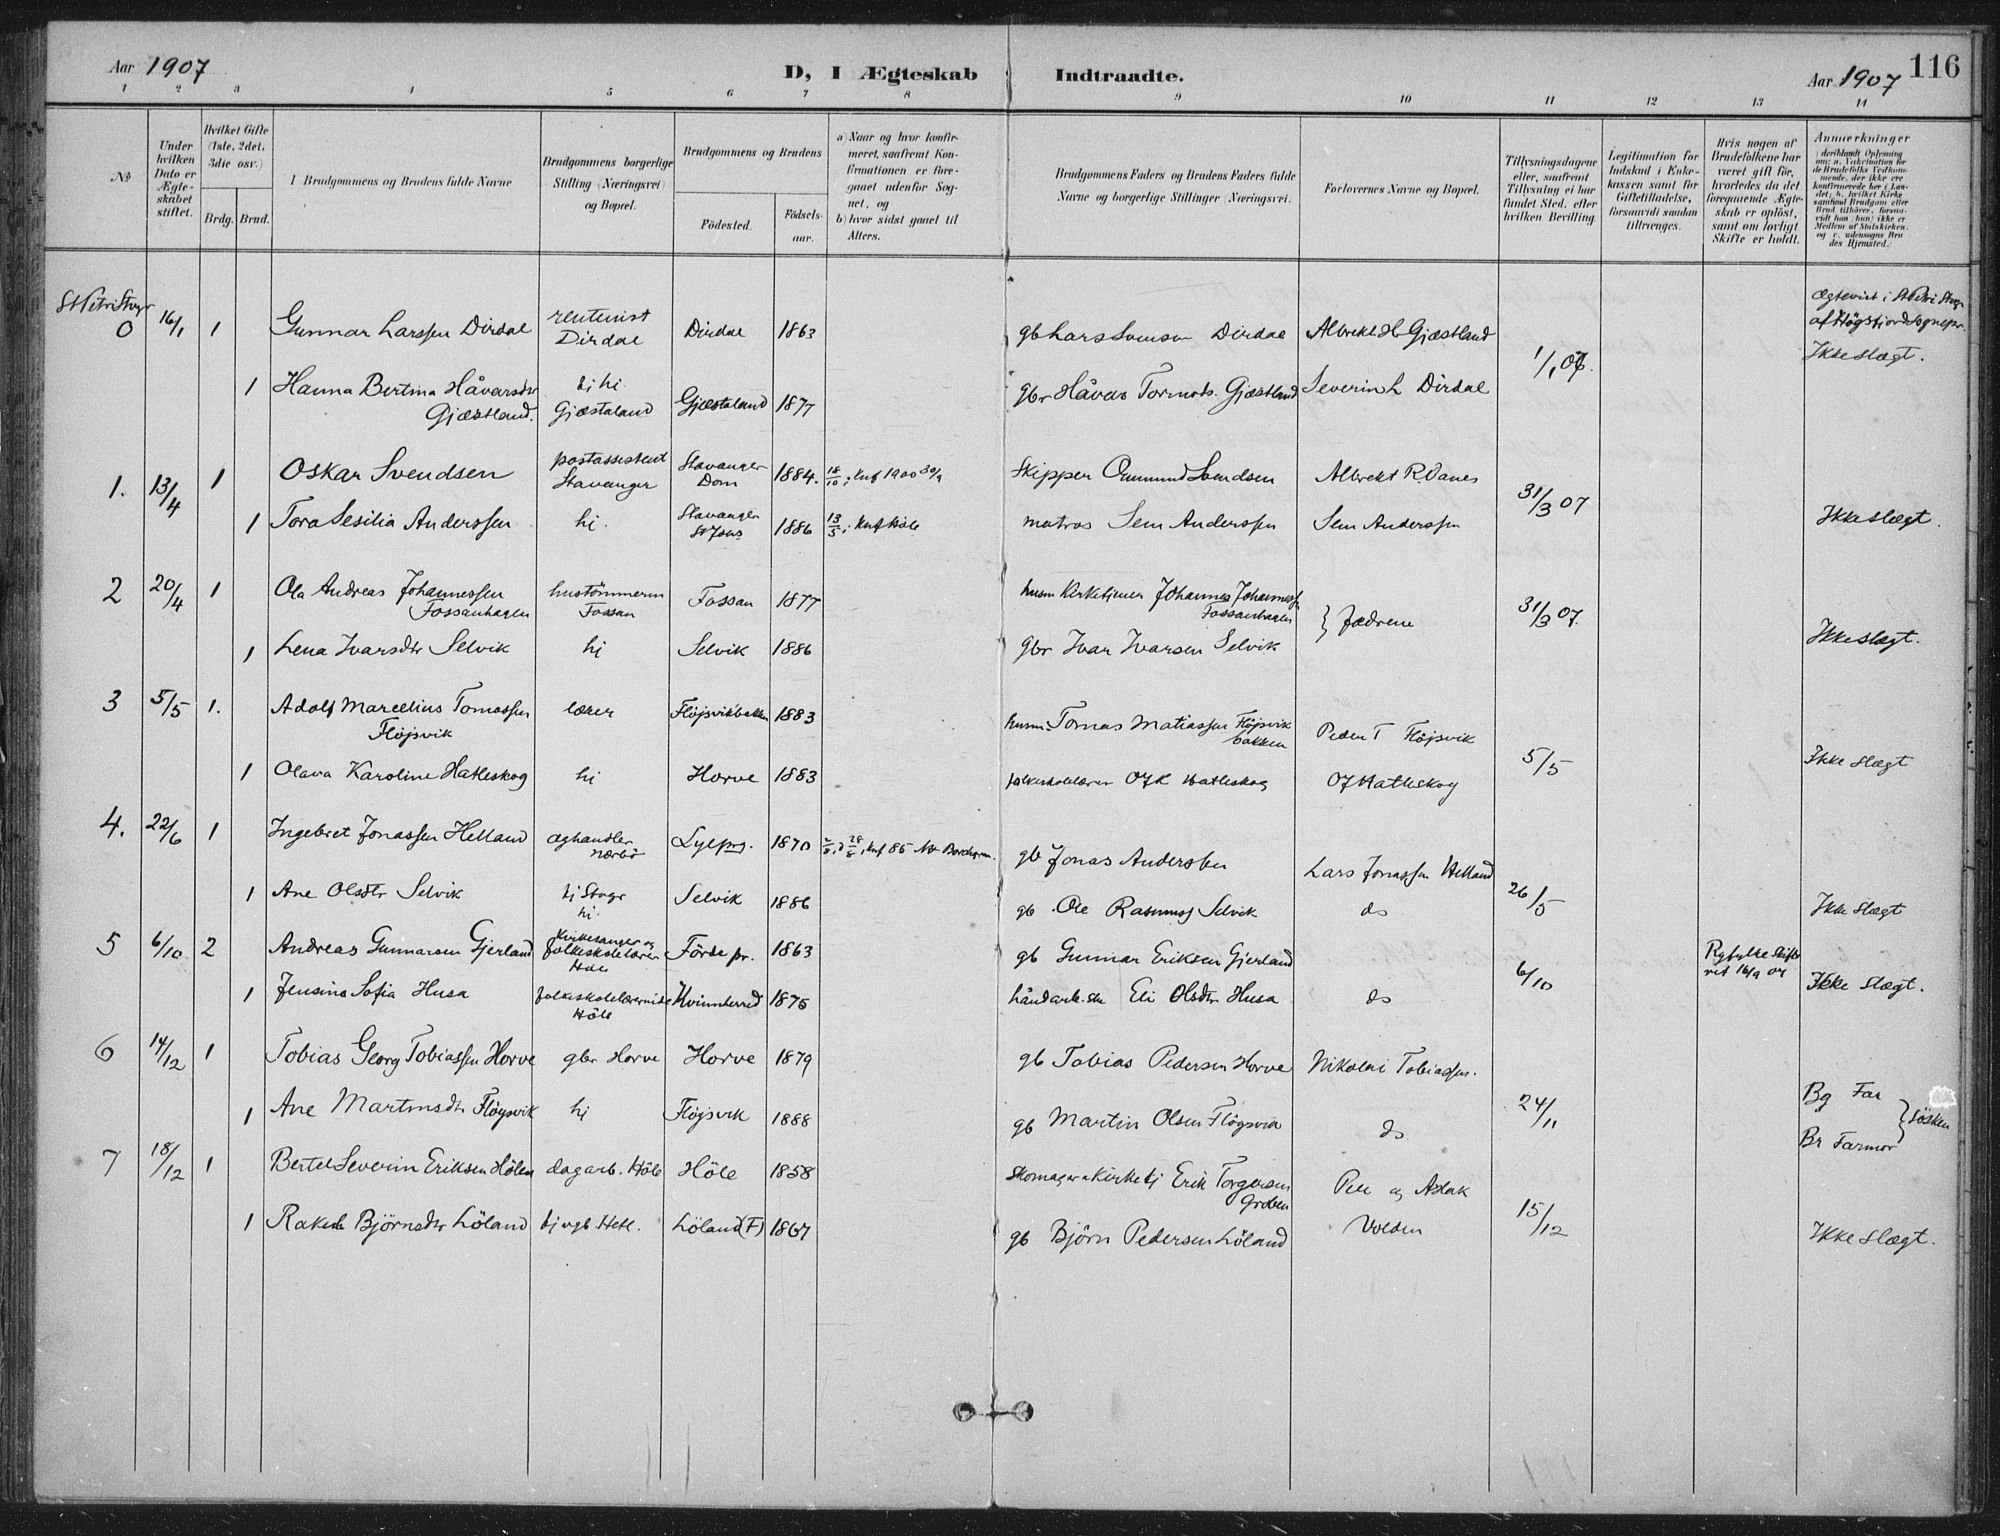 Aar 1907
D, I Ægteskab Indtraadte.
Aar 1907 116
1 2 3 4 5 6 7 8 9 10 11 12 13 14
No
Under hvilken Dato er Ægteskabet stiftet.
Hvilket Gifte (1ste, 2det, 3die osv.)
Brdg. Brud.
1 Brudgommens og Brudens fulde Navne
Brudgommens borgerlige Stilling (Næringsvei) og Bopæl.
Brudgommens og Brudens
Fødested.
Fødselsaar.
a) Naar og hvor konfirmeret, saafremt Konfirmationen er foregaaet udenfor Sognet, og
b) hvor sidst gaaet til Alters.
Brudgommens Faders og Brudens Faders fulde Navne og borgerlige Stillinger (Næringsvei.
Forlovernes Navne og Bopæl.
Tillysningsdagene eller, saafremt Tillysning ei har fundet Sted, efter hvilken Bevilling.
Legitimation for Indskud i Enkekassen samt for Giftetilladelse, forsaavidt saadan tiltrænges.
Hvis nogen af Brudefolkene har været gift før, hvorledes da det foregaaende Ægteskab er opløst, samt om lovligt Skifte er holdt.
Anmerkninger
St Petri Stvgr 0 16/1 1 Gunnar Larssen Dirdal rentenist Dirdal Dirdal 1863 gb Lars Svensen Dirdal Albrekt H Gjæstland 1/1 07. Ægteviet i St Petri Stvgr af Høgsfjord Sognepr. Ikke slægt.
1 Hanna Bertina Håvarsdtr Gjæstland. tj hj Gjæstaland Gjæstaland 1877 gbr Håvar Tormods. Gjæstland Severin L Dirdal
1. 13/4 1 Oskar Svendsen postassistent Stavanger Stavanger Dom 1884. 18/10; knf 1900 30/9 Skipper Svendsen Albrekt R. Vanes 31/3 07 Ikke slægt.
1 Tora Sesilia Anderssen hj. Stavanger St Johs 1886 13/5; knf Høle matros Sem Anderssen Sem Anderssen
2 20/4 1 Ola Andreas Johannessen Fossanhagen hustömmerm Fossan Fossan 1877 husm Kirketjener Johannes Johannessen Fossanhagen } Fædrene 31/3 07. Ikke slægt.
1 Lena Ivarsdtr Selvik hj Selvik 1886 gbr Ivar Ivarsen Selvik
3 5/5 1. Adolf Marcelius Tomassen Flöjsvik lærer Flöjsvikbakken 1883 husm. Tomas Matiassen Flöjsvik bakken Peder T Flöjsvik 5/5 Ikke slægt
1 Olava Karoline Hatleskog hj Horve 1883 folkeskolelærer O J K Hatleskog O J Hatleskog
4. 22/6 1 Ingebret Jonassen Helland æghandler Nærbö Lyepr. 1870 28/8; knf 85 gb Jonas Anderssen Lars Jonassen Helland 26/5 Ikke slægt
1 Ane Olsdtr Selvik tj Stvgr hj. Selvik 1886 gb. Ole Rasmuss Selvik do
5 6/10 2 Andreas Gunnarsen Gjerland Kirkesanger og folkeskolelærer Høle Förde pr. 1863 gb Gunnar Eriksen Gjerland 6/10 Ryfylke Skifteret 16/9 07 Ikke slægt.
1 Jensine Sofia Husa folkeskolelærerinde Höle Kvinnherred 1875 håndarb.ske Eli Olsdtr Husa do
6 14/12 1 Tobias Georg Tobiassen Horve gbr Horve Horve 1879 gb Tobias Pedersen Horve Nikolai Tobiassen. 24/11 Bg Far } sösken Br Farmor
1 Ane Martinsdtr Flögsvik hj Flöjsvik 1888 gb Martin Olsen Flögsvik do
7 18/12 1 Bertel Severin Eriksen Hölen dagarb. Höle Höle 1858 Skomager Kirketj Erik Torgersen Groben Per og Aslak Volden 15/12 Ikke slægt.
1 Rakel Björnsdtr Löland tj Hetl. Löland (F) 1867 gb Björn Pedersen Löland